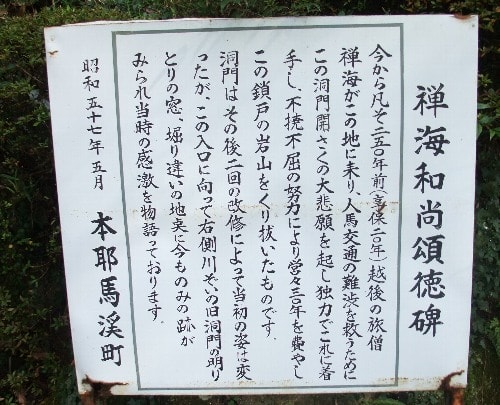 禅海和尚頌徳碑
今から凡そ二五〇年前(享保二〇年)越後の旅僧
禅海がこの地に来り、人馬交通の難渋を救うために
この洞門開さくの大悲願を起し独力でこれに着
手し、不撓不屈の努力により営々三〇年を費やし
この鎖戸の岩山をくり抜いたものです。
洞門はその後二回の改修によって当初の姿は変
ったが、この入口に向って右側川ぞいの旧洞門の明り
とりの窓、堀り違いの地点に今ものみの跡が
みられ当時の感激を物語っております。
昭和五十七年五月
本耶馬溪町